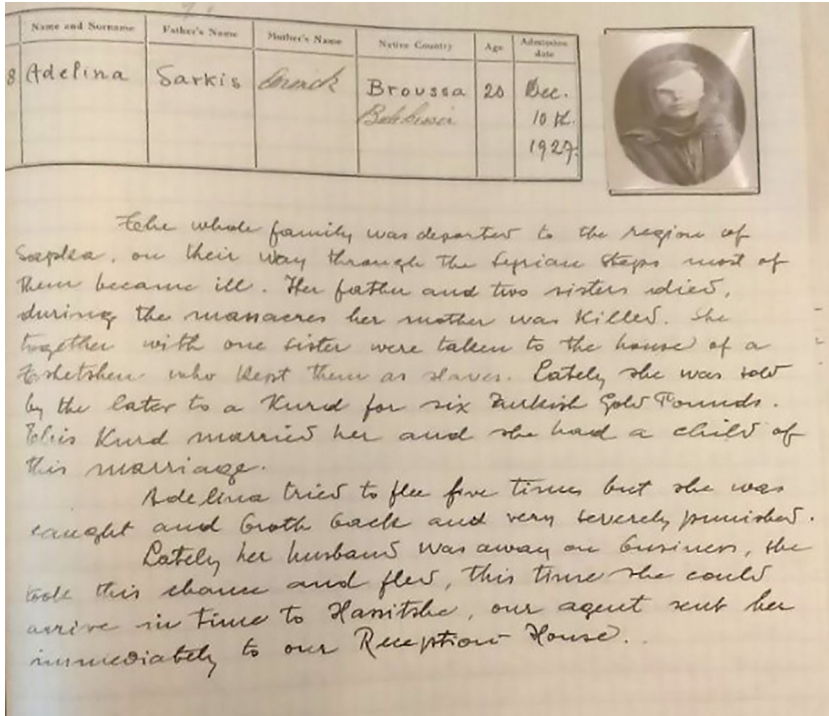 Name and Surname Father's Name Mother's Name Native Country Age Admission date
8 Adelina Sarkis Broussa 20 Dec.
10th
1927.
The whole family was deported to the region of
on their way through the Syrian steps most of
them became ill. Her father and two sisters died,
during the massacres her mother was killed. She
together with one sister were taken to the house of a
who kept them as slaves. Lately she was sold
by the later to a Kurd for six Turkish Gold Pounds.
This Kurd married her and she had a child of
this marriage.
Adelina tried to flee five times but she was
caught and broth back and very severely punished.
Lately her husband was away on business, she
took this chance and fled, this time she could
arrive in time to Hassitshe, our agent sent her
immediately to our Reception House.